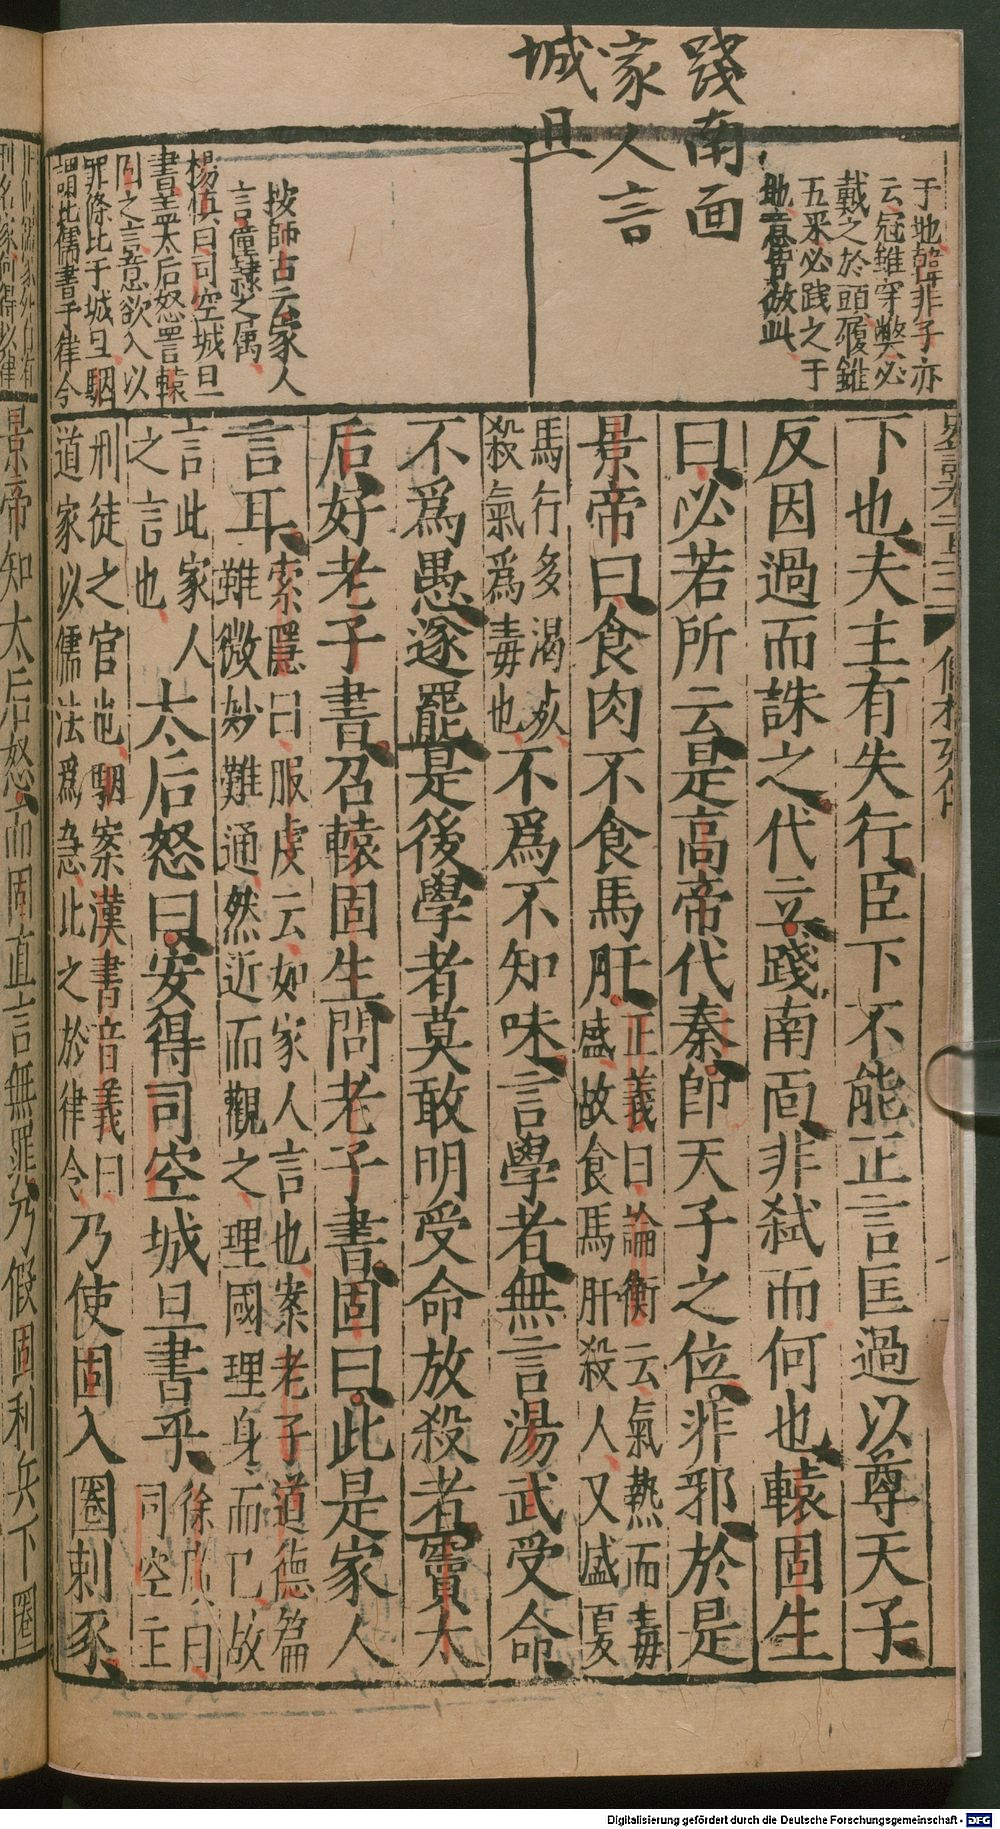 踐南面
家人言
城旦
于地韓非子亦
云冠雖穿弊必
戴之於頭履雖
五采必踐之于
地意皆放此
按師古云家人
言僮隸之属
楊慎曰司空城旦
書盖太后怒詈轅
固之言意欲入以
罪條比于城旦駰
謂比儒書于律令
下也夫主有失行臣下不能正言匡過以尊天子
反因過而誅之代立踐南面非弑而何也轅固生
曰必若所云是高帝代秦即天子之位非邪於是
景帝曰食肉不食馬肝正義曰論衡云氣熱而毒
盛故食馬肝殺人又盛夏
馬行多渴死
殺氣爲毒也不爲不知味言學者無言湯武受命
不爲愚遂罷是後學者莫敢明受命放殺者竇太
后好老子書召轅固生問老子書固曰此是家人
言耳索隱曰服虔云如家人言也案老子道德篇
雖微妙難通然近而觀之理國理身而已故
言此家人
之言也太后怒曰安得司空城旦書乎徐廣曰
司空主
刑徒之官也駰案漢書音義曰
道家以儒法爲急比之於律令乃使固入圈刺豕
景帝知太后怒而固直言無罪乃假固利兵下圈
Digitalisierung gefördert durch die Deutsche Forschungsgemeinschaft - DFG